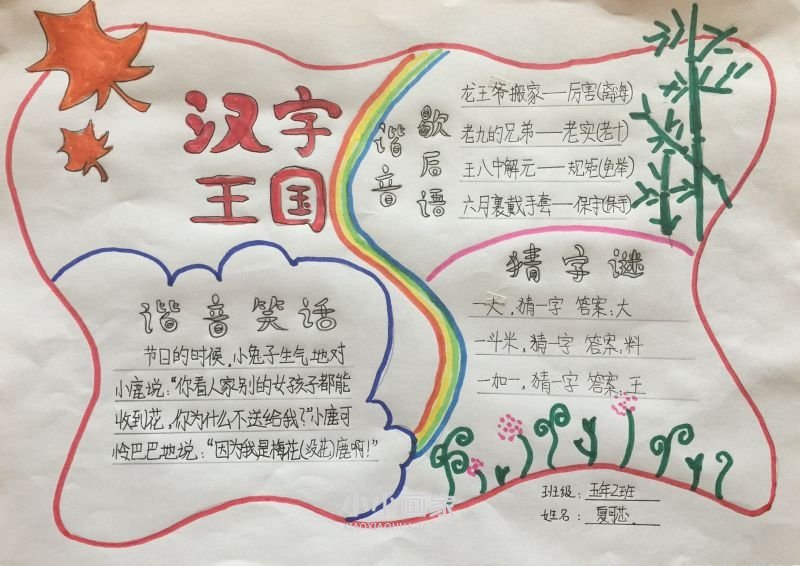 汉字
王国
谐音
歇后语
龙王爷搬家——厉害(离海)
老九的兄弟——老实(老十)
王八中解元——规矩(龟举)
六月裏戴手套——保守(保手)
猜字谜
一大,猜一字 答案:大
一斗米,猜一字 答案:料
一加一,猜一字 答案:王
谐音笑话
节日的时候,小兔子生气地对
小鹿说:“你看人家别的女孩子都能
收到花,你为什么不送给我?”小鹿可
怜巴巴地说:“因为我是梅花(没花)鹿啊!”
班级:五年2班
姓名:夏可芯
小小画家